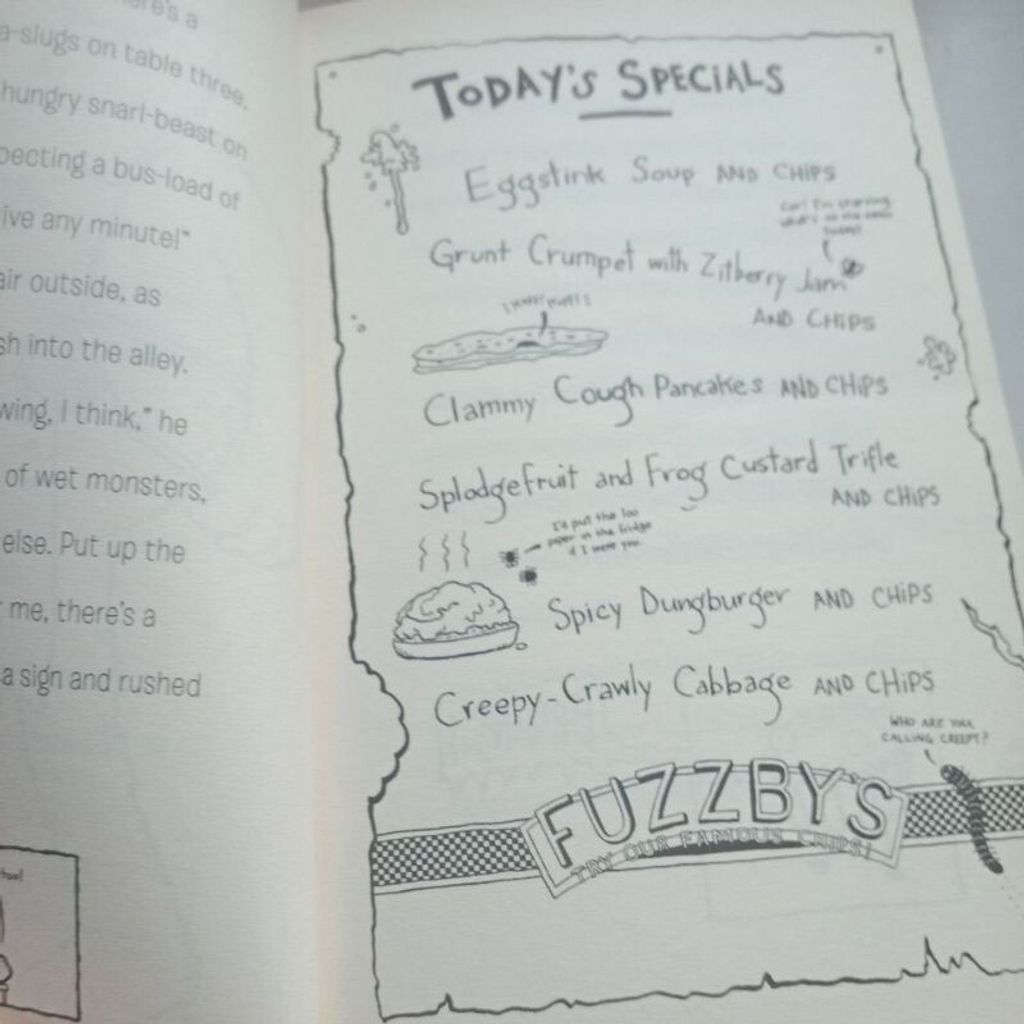 here's a
a-slugs on table three,
hungry snarl-beast on
pecting a bus-load of
ive any minute!"
air outside, as
sh into the alley.
wing, I think," he
of wet monsters,
else. Put up the
me, there's a
a sign and rushed
TODAY'S SPECIALS
Eggstink Soup AND CHIPS
Grunt Crumpet with Zitberry Jam
AND CHIPS
Clammy Cough Pancakes AND CHIPS
Splodgefruit and Frog Custard Trifle
AND CHIPS
I'd put the loo
paper in the fridge
if I were you.
Spicy Dungburger AND CHIPS
Creepy-Crawly Cabbage AND CHIPS
WHO ARE YOU
CALLING CREEPY?
FUZZBY'S
TRY OUR FAMOUS CHIPS!